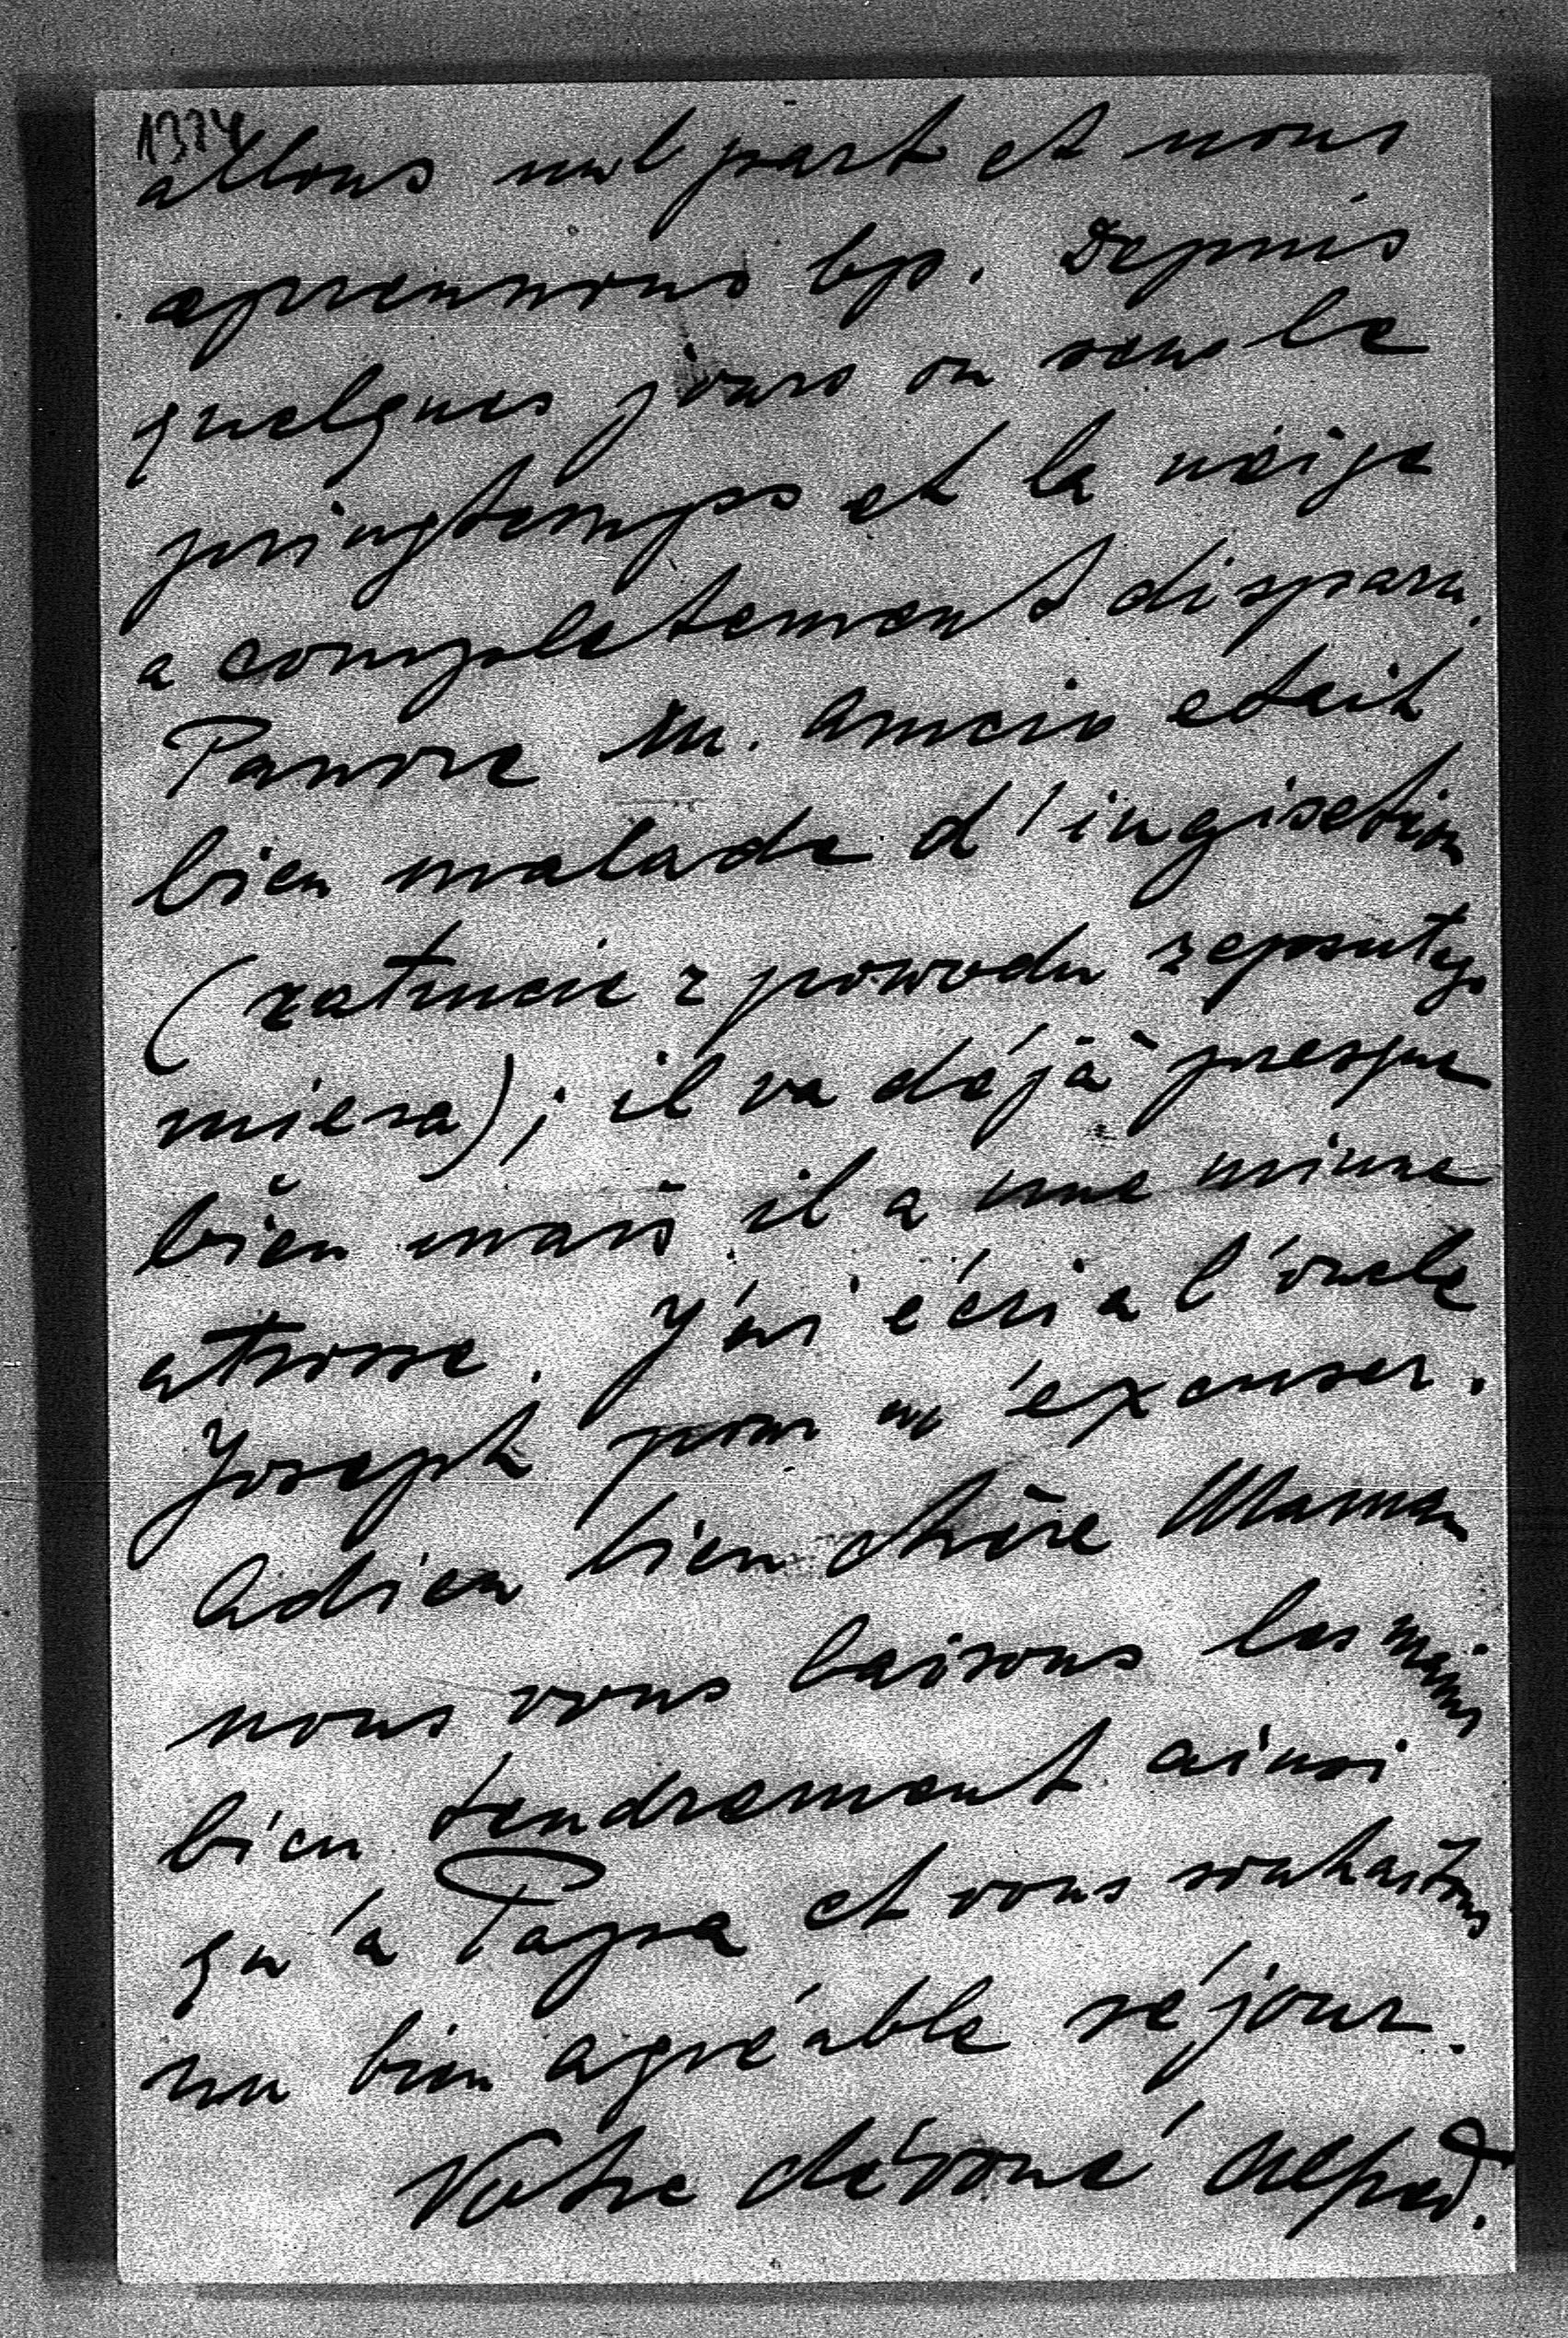 1374
allons nul part et nous
aprennons bp. Depuis
quelques jours on sens le
pringtemps et la neige
a completement disparu.
Pauvre M. Amcio etait
bien malade d'ingisetion
(zatrucie z powodu zepsutego
miesa); il va déjà presque
bien mais il a une minne
atrosse. J'ai écri a l'óncle
Joseph pour m'éxcuser.
Adieu bien chère Maman
nous vous baisons les mains
bien tendrement ainsi
qu'à Papa et vous souhaitons
un bien agréable séjour.
Votre dévoué Alfred.